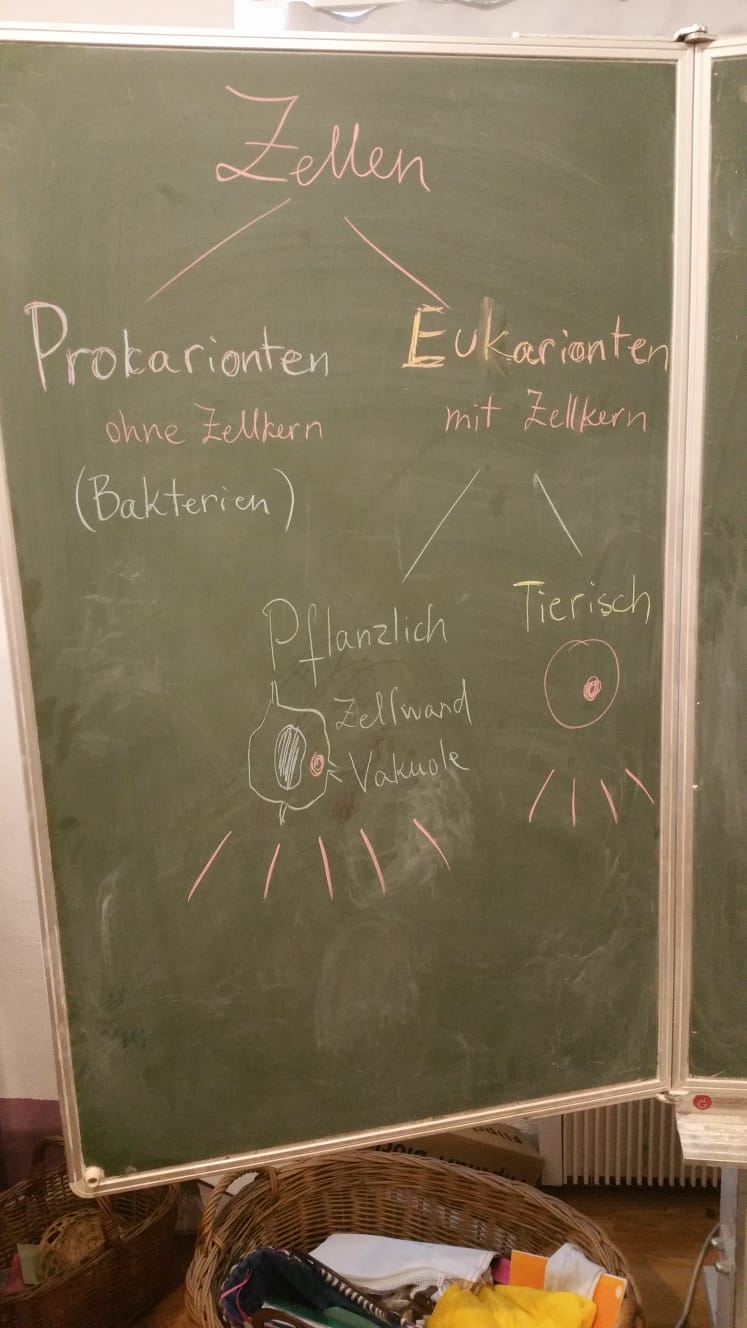 Zellen
Prokarionten
Eukarionten
ohne Zellkern
mit Zellkern
(Bakterien)
Pflanzlich
Tierisch
Zellwand
Vakuole